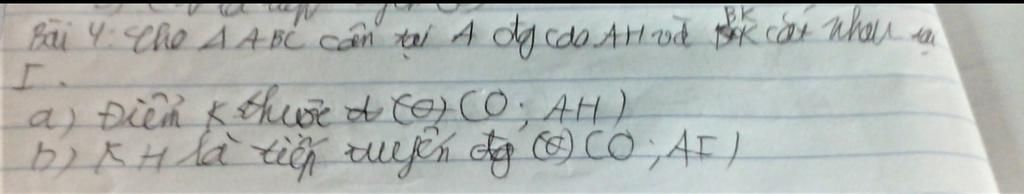 Bài 4: Cho Δ ABC cân tại A đg cao AH và BK cắt nhau tại
I.
a) Điểm K thuộc (O) (O; AH)
b) KH là tiếp tuyến đg (O) (O; AI)